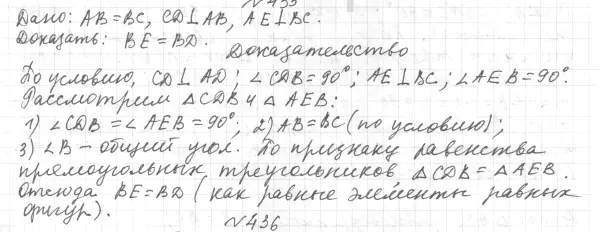 №433
Дано: AB = BC, CD⊥AB, AE⊥BC.
Доказать: BE = BD.
Доказательство
По условию, CD⊥AD; ∠CDB = 90°; AE⊥BC; ∠AEB = 90°.
Рассмотрим △CDB и △AEB:
1) ∠CDB = ∠AEB = 90°; 2) AB = BC (по условию);
3) ∠B – общий угол. По признаку равенства
прямоугольных треугольников △CDB = △AEB.
Отсюда BE = BD (как равные элементы равных
фигур).
№436